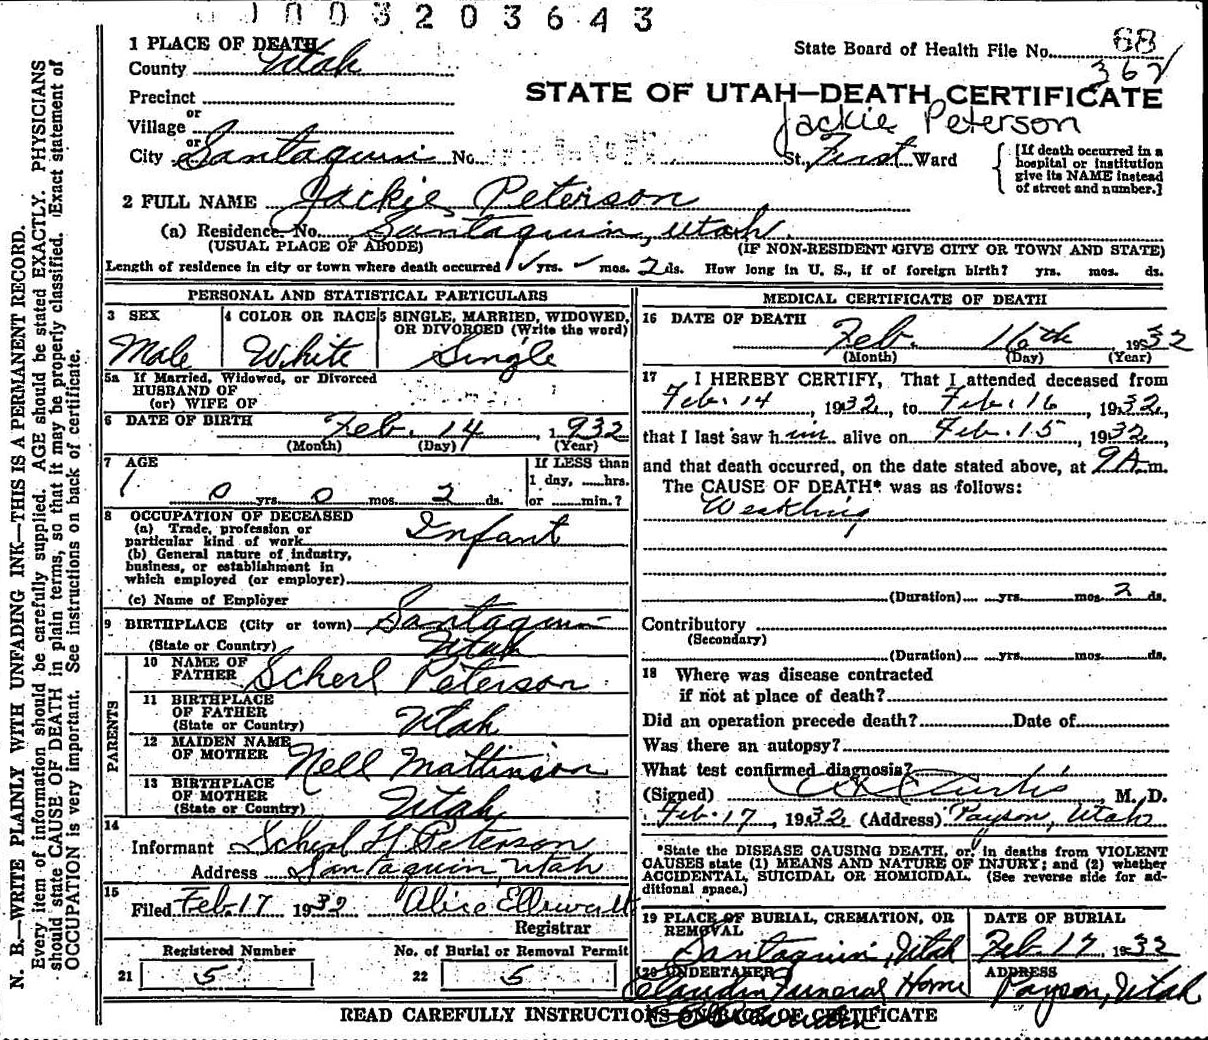 0003203643
1 PLACE OF DEATH
State Board of Health File No. 68
County Utah
362
Precinct
STATE OF UTAH—DEATH CERTIFICATE
or
Village
Jackie Peterson
or
City Santaquin No. St., First Ward
[If death occurred in a hospital or institution give its NAME instead of street and number.]
2 FULL NAME Jackie Peterson
(a) Residence. No. Santaquin, Utah.
(USUAL PLACE OF ABODE) (IF NON-RESIDENT GIVE CITY OR TOWN AND STATE)
Length of residence in city or town where death occurred yrs. mos. 2 ds. How long in U. S., if of foreign birth? yrs. mos. ds.
PERSONAL AND STATISTICAL PARTICULARS
3 SEX 4 COLOR OR RACE 5 SINGLE, MARRIED, WIDOWED,
OR DIVORCED (Write the word)
Male White Single
5a If Married, Widowed, or Divorced
HUSBAND OF
(or) WIFE OF
6 DATE OF BIRTH Feb. 14, 1932
(Month) (Day) (Year)
7 AGE If LESS than
1 day, hrs.
0 yrs. 0 mos. 2 ds. or min.?
8 OCCUPATION OF DECEASED
(a) Trade, profession or
particular kind of work Infant
(b) General nature of industry,
business, or establishment in
which employed (or employer)
(c) Name of Employer
9 BIRTHPLACE (City or town) Santaquin
(State or Country) Utah
PARENTS
10 NAME OF
FATHER Scherl Peterson
11 BIRTHPLACE
OF FATHER
(State or Country) Utah
12 MAIDEN NAME
OF MOTHER Nell Mattinson
13 BIRTHPLACE
OF MOTHER
(State or Country) Utah
14
Informant Scherl H Peterson
Address Santaquin, Utah
15
Filed Feb. 17 1932 Alice
Registrar
Registered Number No. of Burial or Removal Permit
21 5 22 5
MEDICAL CERTIFICATE OF DEATH
16 DATE OF DEATH
Feb. 16th, 1932
(Month) (Day) (Year)
17 I HEREBY CERTIFY, That I attended deceased from
Feb. 14, 1932, to Feb. 16, 1932,
that I last saw him alive on Feb. 15, 1932,
and that death occurred, on the date stated above, at 9 A.m.
The CAUSE OF DEATH* was as follows:
Weakling
(Duration) yrs. mos. 2 ds.
Contributory
(Secondary)
(Duration) yrs. mos. ds.
18 Where was disease contracted
if not at place of death?
Did an operation precede death? Date of
Was there an autopsy?
What test confirmed diagnosis?
(Signed) Curtis M. D.
Feb. 17, 1932 (Address) Payson, Utah
*State the DISEASE CAUSING DEATH, or, in deaths from VIOLENT
CAUSES state (1) MEANS AND NATURE OF INJURY; and (2) whether
ACCIDENTAL, SUICIDAL OR HOMICIDAL. (See reverse side for ad-
ditional space.)
19 PLACE OF BURIAL, CREMATION, OR DATE OF BURIAL
REMOVAL
Santaquin, Utah Feb. 17 1932
20 UNDERTAKER ADDRESS
Funeral Home Payson, Utah
READ CAREFULLY INSTRUCTIONS ON BACK OF CERTIFICATE
N. B.—WRITE PLAINLY WITH UNFADING INK—THIS IS A PERMANENT RECORD.
Every item of information should be carefully supplied. AGE should be stated EXACTLY. PHYSICIANS
should state CAUSE OF DEATH in plain terms, so that it may be properly classified. Exact statement of
OCCUPATION is very important. See instructions on back of certificate.